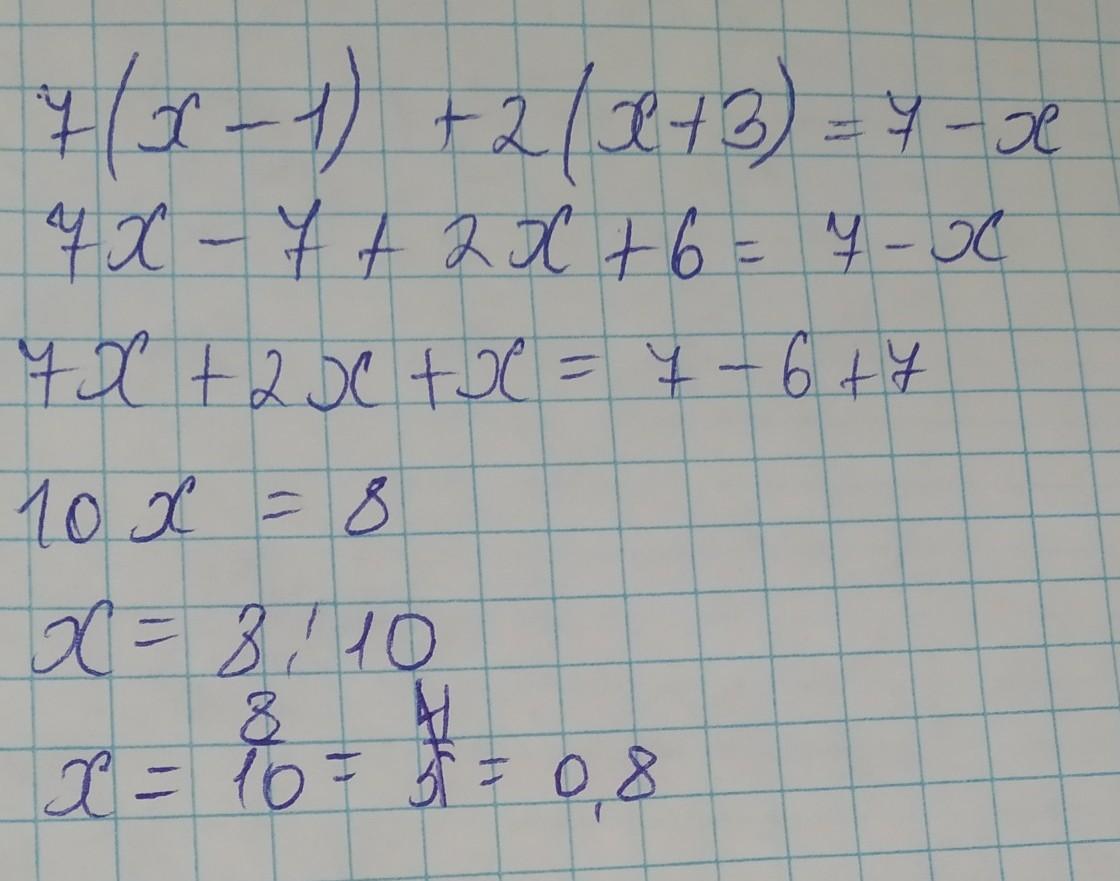 7(x-1) +2(x+3)=7-x
7x-7+2x+6=7-x
7x+2x+x=7-6+7
10x=8
x=8:10
x=8/10=4/5=0,8